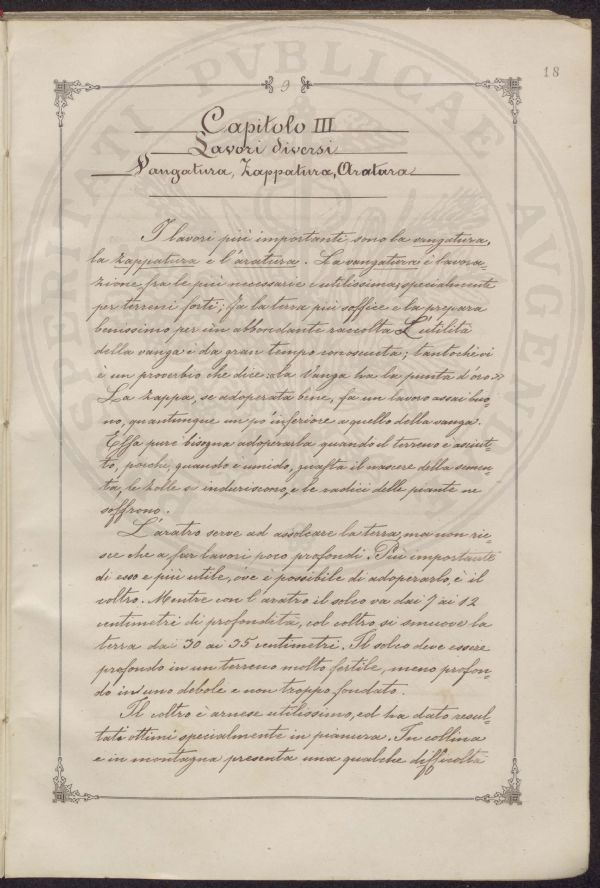 18
9
Capitolo III
Lavori diversi
Vangatura, Zappatura, Aratura
I lavori più importanti sono la vangatura,
la zappatura e l'aratura. La vangatura è lavora-
zione, fra le più necessarie e utilissima, specialmente
per terreni forti; fa la terra più soffice e la prepara
benissimo per un abbondante raccolto. L'utilità
della vanga è da gran tempo conosciuta; tantochè vi
è un proverbio che dice: «la Vanga ha la punta d'oro»
La zappa, se adoperata bene, fa un lavoro assai buo-
no, quantunque un po' inferiore a quello della vanga.
Essa pure bisogna adoperarla quando il terreno è asciut-
to, perchè, quando è umido, guasta il nascere della semen-
ta, le zolle si induriscono, e le radici delle piante ne
soffrono.
L'aratro serve ad assolcare la terra, ma non rie-
sce che a far lavori poco profondi. Più importante
di esso e più utile, ove è possibile di adoperarlo, è il
coltro. Mentre con l'aratro il solco va dai 9 ai 12
centimetri di profondità, col coltro si smuove la
terra dai 30 ai 35 centimetri. Il solco deve essere
profondo in un terreno molto fertile, meno profon-
do in uno debole e non troppo fondato.
Il coltro è arnese utilissimo, ed ha dato resul-
tati ottimi specialmente in pianura. In collina
e in montagna presenta una qualche difficoltà
SPERITATI PVBLICAE AVGENDAE